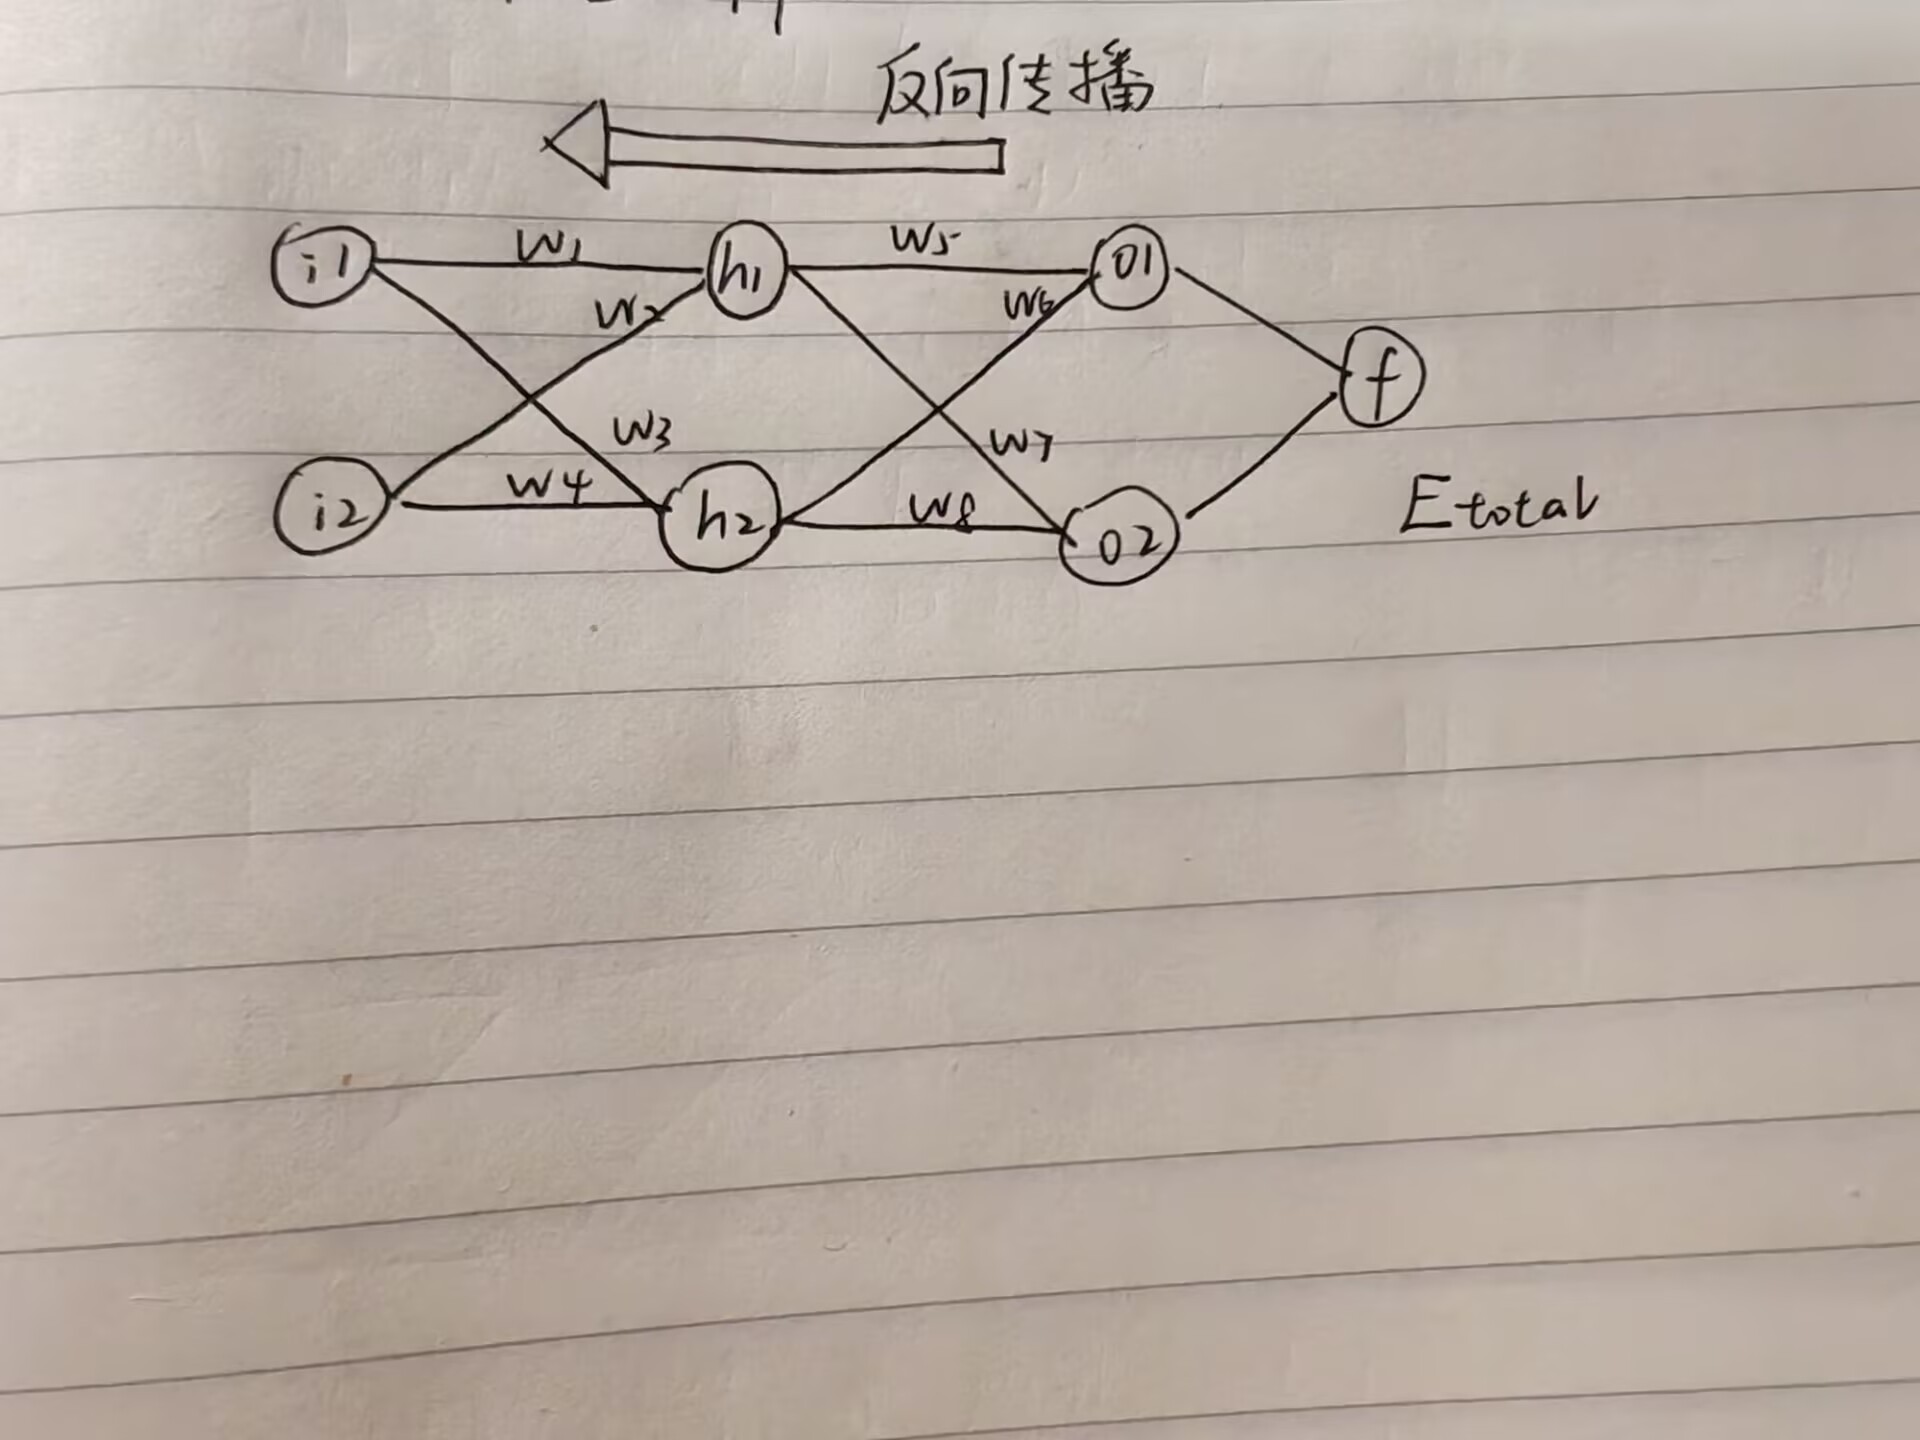 反向传播
i1 w1 h1 w5 o1
w2 w6
f
w3 w7
i2 w4 h2 w8 o2
Etotal